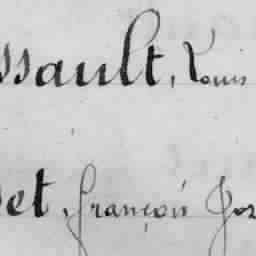 ssault, Louis
et, françois Jos